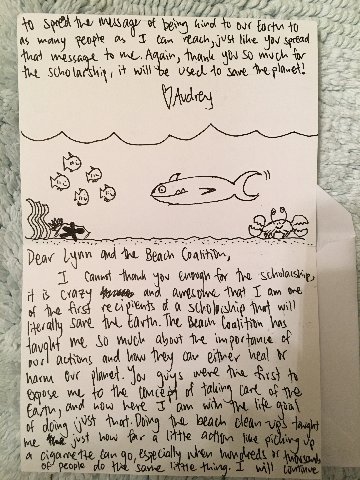 to spread the message of being kind to our Earth to
as many people as I can reach, just like you spread
that message to me. Again, thank you so much for
the scholarship, it will be used to save the planet!
♡Audrey
Dear Lynn and the Beach Coalition,
I cannot thank you enough for the scholarship,
it is crazy and awesome that I am one
of the first recipients of a scholarship that will
literally save the Earth. The Beach Coalition has
taught me so much about the importance of
our actions and how they can either heal or
harm our planet. You guys were the first to
expose me to the concept of taking care of the
Earth, and now here I am with the life goal
of doing just that. Doing the beach clean-ups taught
me just how far a little action like picking up
a cigarette can go, especially when hundreds or thousands
of people do the same little thing. I will continue